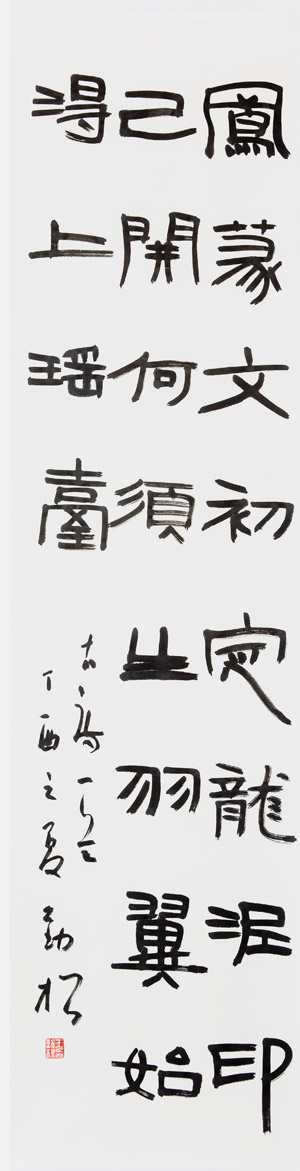 鳳篆文初定龍泥印
已開何須生羽翼始
得上瑤臺
丁酉之夏